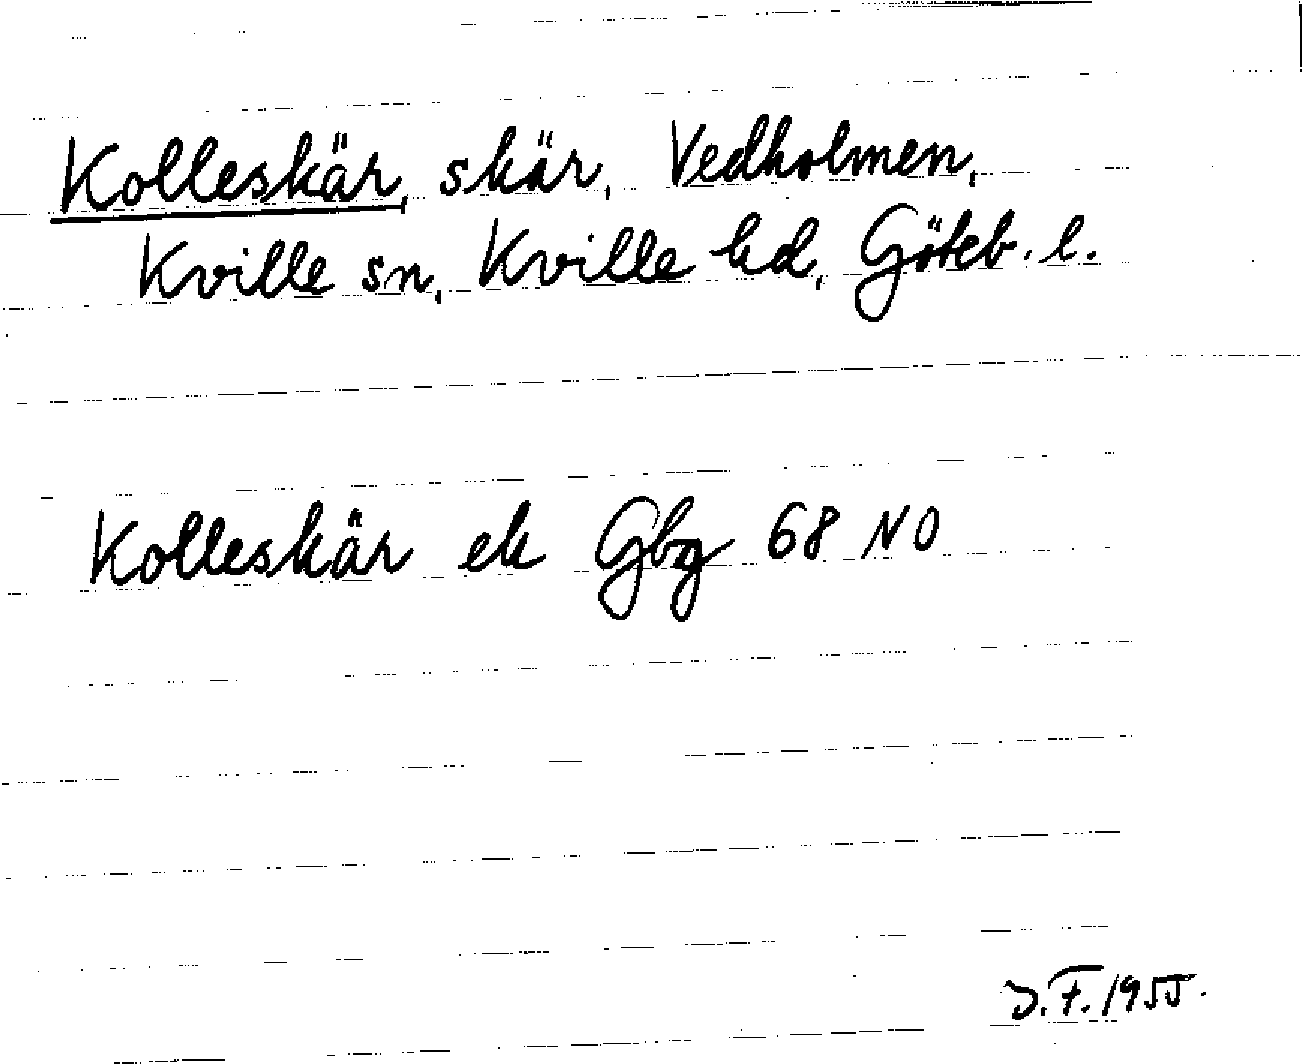 Kolleskär, skär, Vedholmen,
Kville sn, Kville hd, Göteb. l.
Kolleskär ek Gbg 68 NO
J.F. 1955.